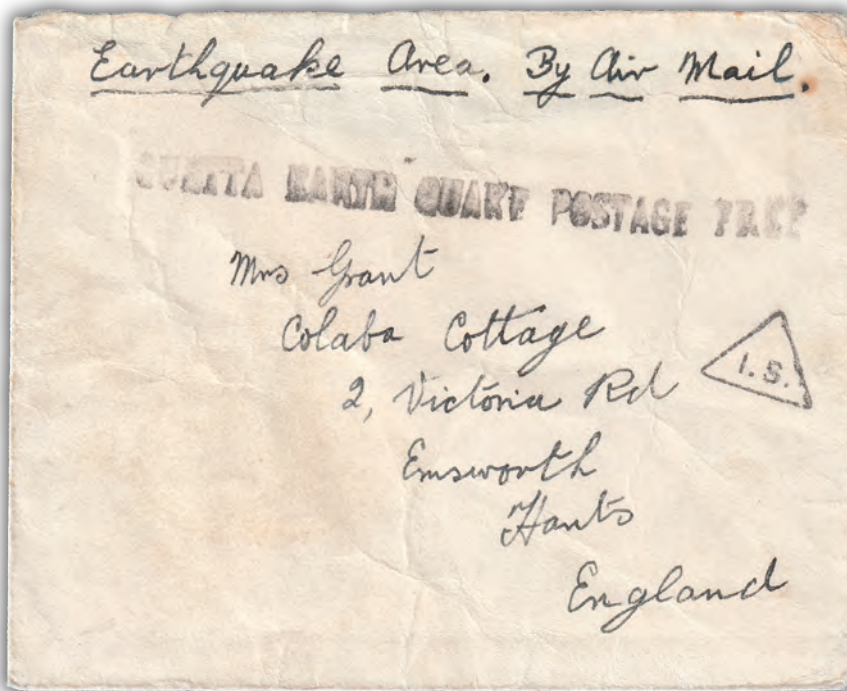 Earthquake Area. By Air Mail.
QUETTA EARTH QUAKE POSTAGE FREE
Mrs Grant
Colaba Cottage
2, Victoria Rd
I.S.
Emsworth
Hants
England